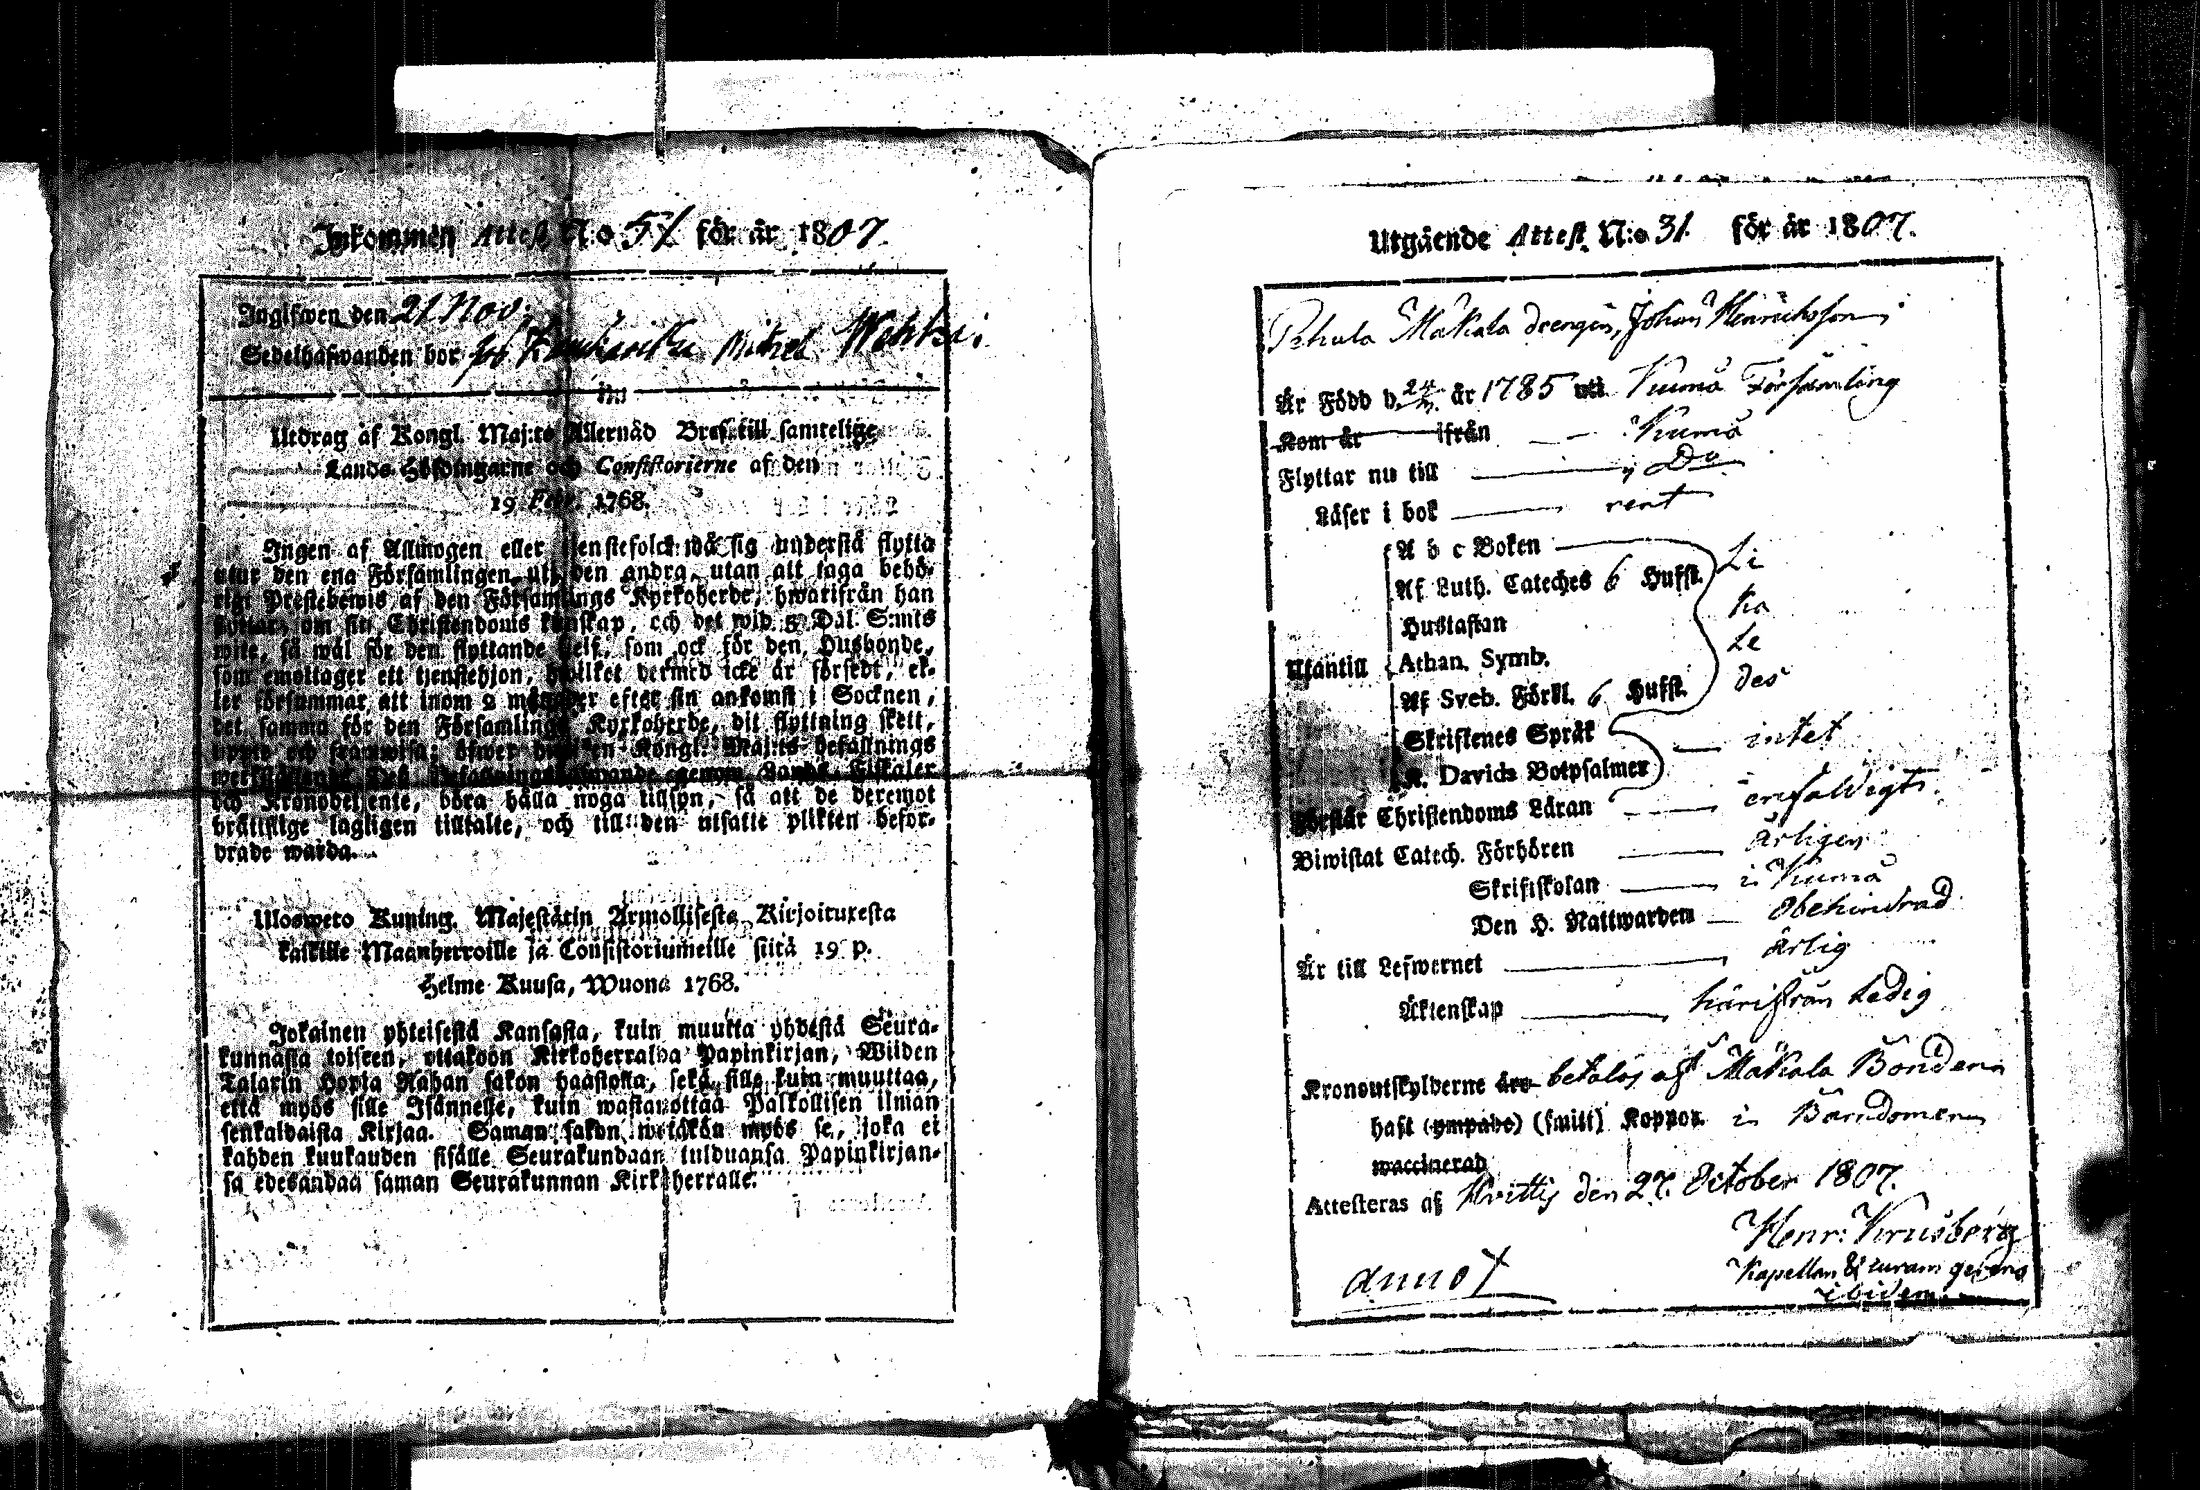 Inkommen Attest N:o 51 för år 1807.
Ingifwen den 21 Nov:
Sedelhafwanden bor hos
Utdrag af Kongl. Maj:ts Allernåd Bref till samtelige
Lands Höfdingarne och Consistorierne af den
19 Febr. 1768.
Ingen af Allmogen eller tjenstefolck må sig understå flytta
utur den ena Församlingen uti den andra, utan att taga behö-
rigt Prestebewis af den Församlings Kyrkoherde, hwarifrån han
flyttar, om sin Christendoms kunskap, och det wid 5 Dal. S:mts
wite, så wäl för den flyttande sielf, som ock för den Husbonde,
som emottager ett tjenstehjon, hwilket dermed icke är försedt, el-
ler försummar att inom 2 månader efter sin ankomst i Socknen,
det samma för den Församlings Kyrkoherde, dit flyttning skett,
uppte och framwisa; öfwer hwilken Kongl. Maj:ts befallnings
werkställande Dess Befallningshafwande genom Lands Fiskaler
och Kronobetjente, böra hålla noga tillsyn, så att de deremot
bråttslige lagligen tilltalte, och till den utsatte plikten befor-
drade warda.
Ulosweto Kuning. Majestätin Armollisesta Kirjoituxesta
kaikille Maanherroille ja Consistoriumeille siitä 19 p.
Helme Kuusa, Wuona 1768.
Jokainen yhteisestä Kansasta, kuin muutta yhdestä Seura-
kunnasta toiseen, ottakoon Kirkoherralda Papinkirjan, Wiiden
Talarin Hopia Rahan sakon haastolla, sekä sille kuin muuttaa,
että myös sille Isännelle, kuin wastanottaa Palkollisen ilman
senkaldaista Kirjaa. Saman sakon wetäkön myös se, joka ei
kahden kuukauden sisälle Seurakundaan tulduansa Papinkirjan-
sa edesandaa saman Seurakunnan Kirkoherralle.
Utgående Attest N:o 31 för år 1807.
Pehula Mäkala drengen, Johan Henricksson
Är Född d. 24 år 1785 uti Kumå Församling
Kom år ifrån Kumå
Flyttar nu till Do
Läser i bok rent
A b c Boken Li
Af Luth. Cateches 6 Hufst.
Hustaflan ka
Utantill Athan. Symb. Le
Af Sveb. Förkl. 6 Hufst. des
Skriftenes Språk intet
K. Davids Botpsalmer
Förstår Christendoms Läran enfaldigt.
Biwistat Catech. Förhören årligen
Skriftskolan i Kumå
Den H. Nattwarden obehindrad
Är till Lefwernet ärlig
Äktenskap härifrån Ledig
Kronoutskylderne äro betalas af Mäkala Bonden
haft (ympade) (smitt) Koppor i Barndomen
waccinerad
Attesteras af Hvittis den 27. October 1807.
Henr: Krusberg
Kapellan & curam gerens
ibidem
annot